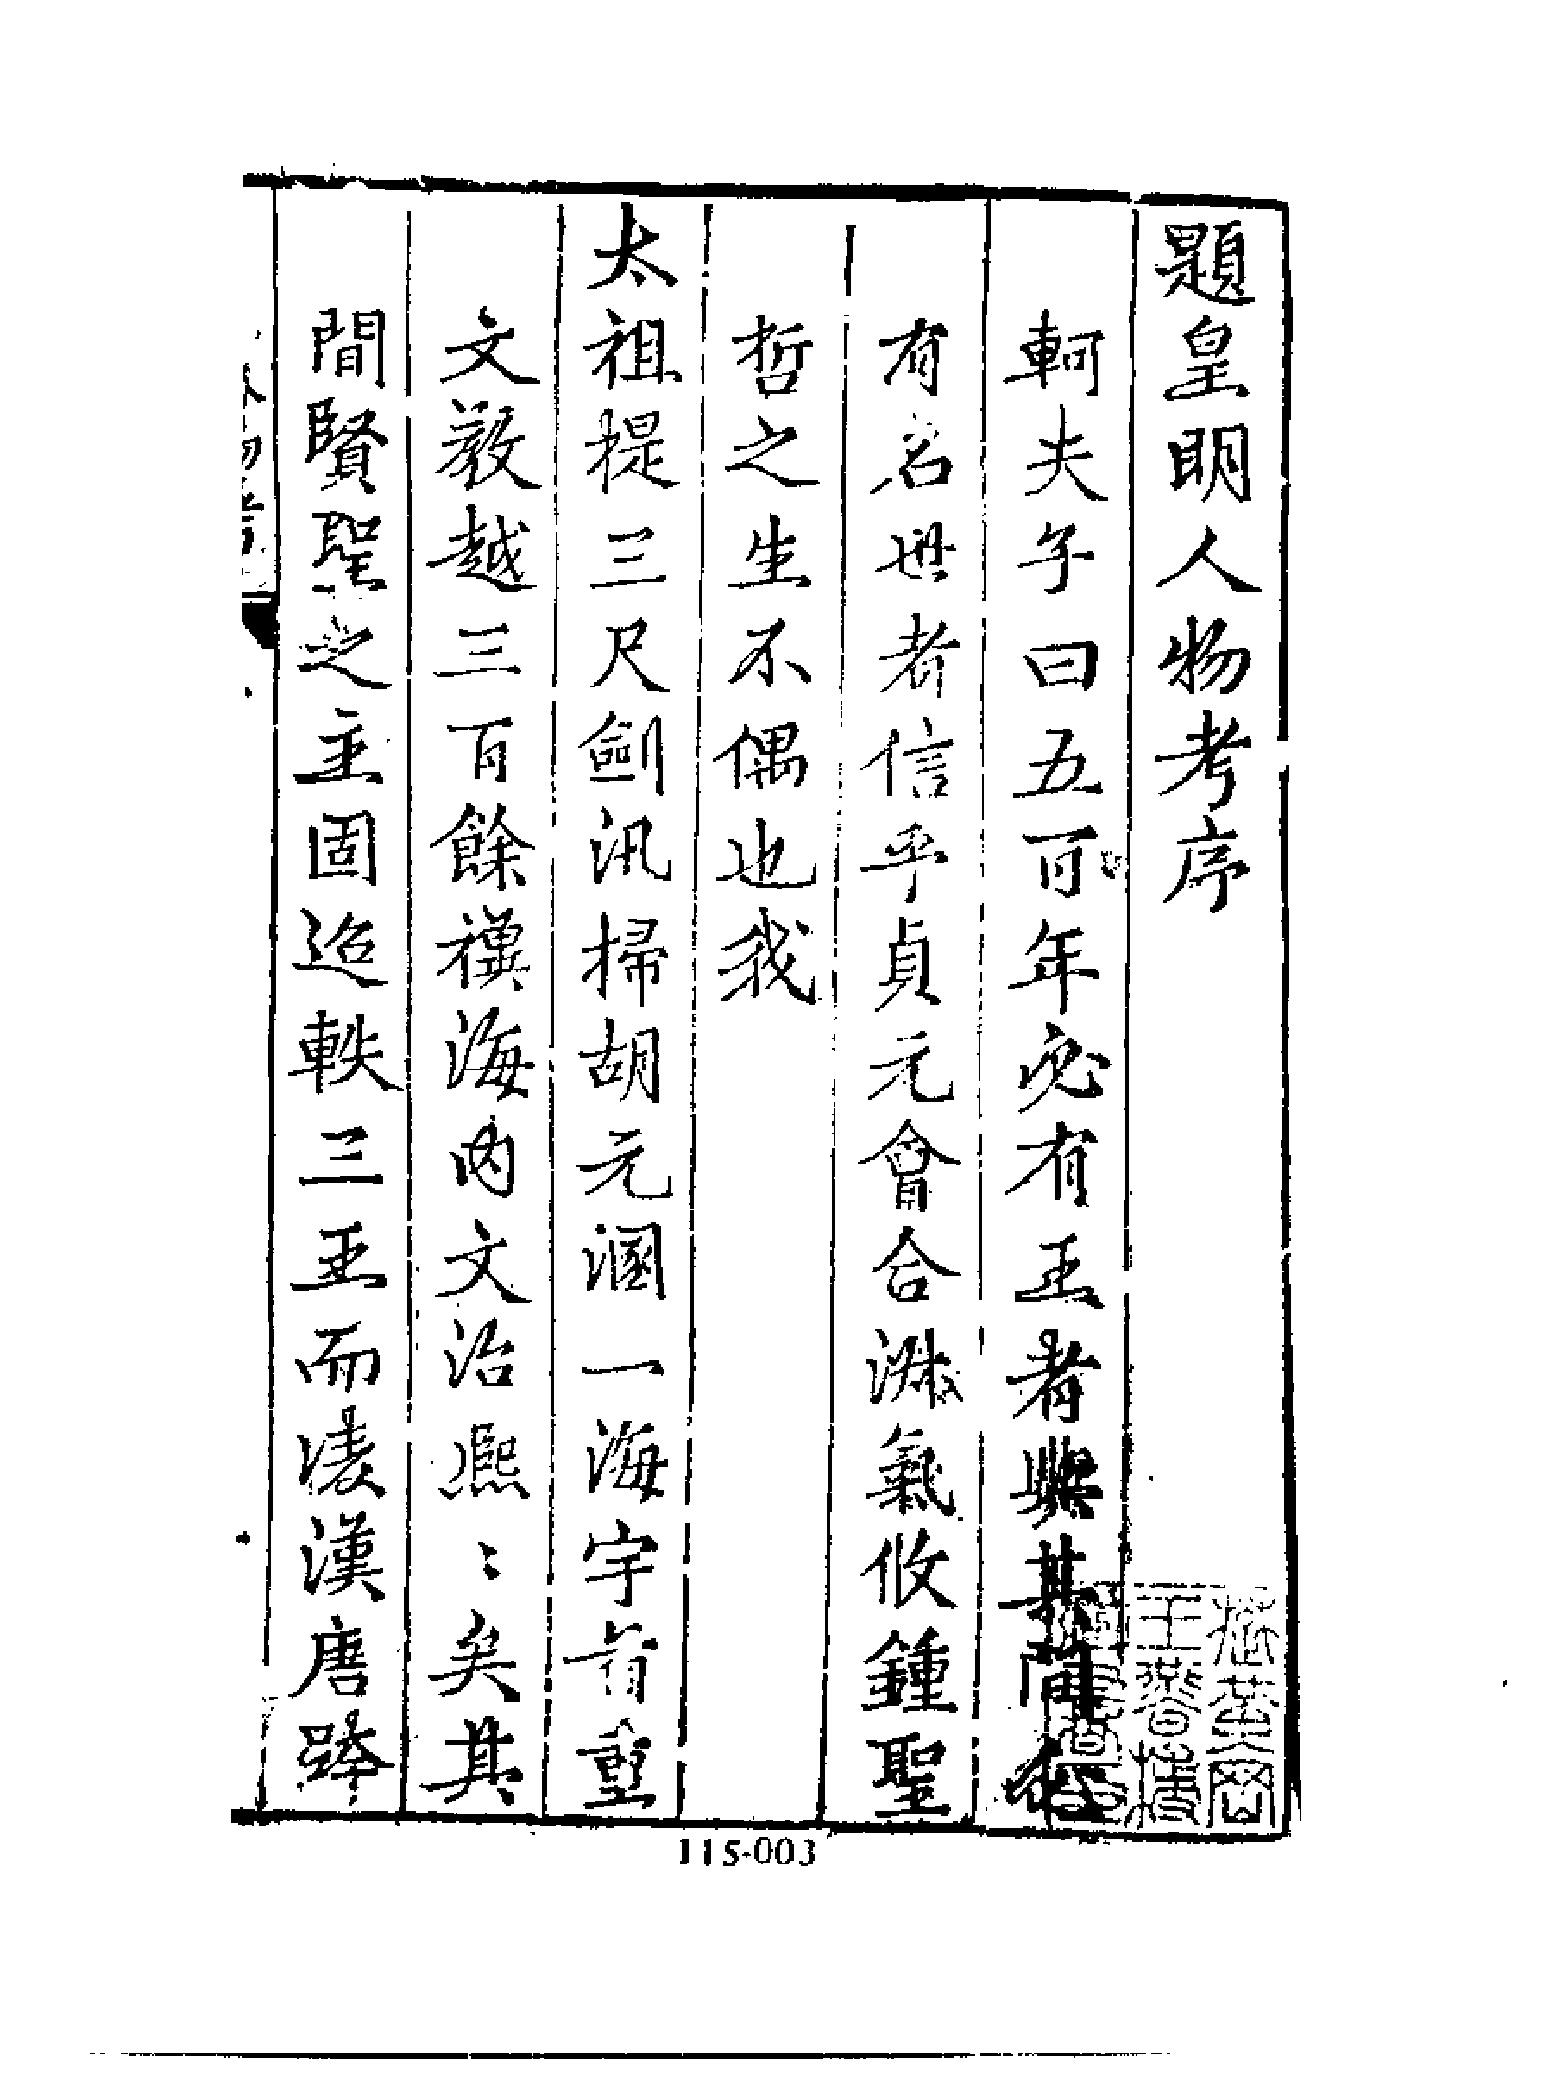 題皇明人物考序
軻夫子曰五百年必有王者興其間必
有名世者信乎貞元會合淑氣攸鍾聖
哲之生不偶也我
太祖提三尺劍汛掃胡元溷一海宇首重
文教越三百餘禩海內文治熙〻矣其
間賢聖之主固迨軼三王而淩漢唐跨
人物考
115-003